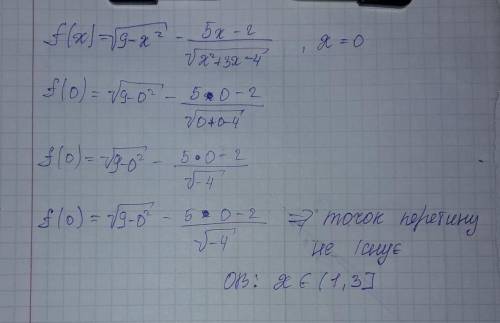 f(x) = √(9-x²) - (5x-2)/√(x²+3x-4) , x = 0
f(0) = √(9-0²) - (5•0-2)/√(0+0-4)
f(0) = √(9-0²) - (5•0-2)/√(-4)
f(0) = √(9-0²) - (5•0-2)/√(-4) => точок перетину
не існує
ОВ: x ∈ (1,3]